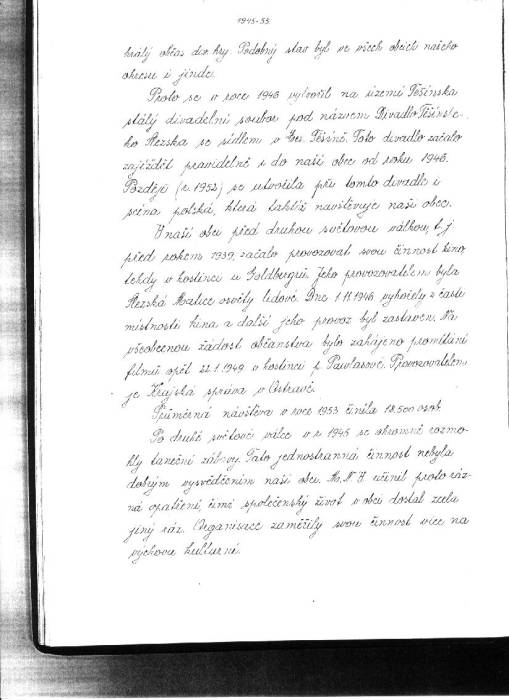 1945-53.
hrály občas div. hry. Podobný stav byl ve všech obcích našeho
okresu i jinde.
Proto se v roce 1945 vytvořil na území Těšínska
stálý divadelní soubor pod názvem Divadlo Těšínské-
ho Slezska se sídlem v Čes. Těšíně. Toto divadlo začalo
zajíždět pravidelně i do naší obce od roku 1946.
Později (r. 1952) se utvořila při tomto divadle i
scéna polská, která taktéž navštěvuje naši obec.
V naší obci před druhou světovou válkou, t. j.
před rokem 1939, začalo provozovat svou činnost kino
tehdy v hostinci u Goldbergrů. Jeho provozovatelem byla
Slezská Matice osvěty lidové. Dne 1946 vyhořely z části
místnosti kina a další jeho provoz byl zastaven. Na
všeobecnou žádost občanstva bylo zahájeno promítání
filmů opět 22. 1. 1949 v hostinci p. Pawlasové. Provozovatelem
je Krajská správa v Ostravě.
Průměrná návštěva v roce 1953 činila 18.500 osob.
Po druhé světové válce v r. 1945 se ohromně rozmo-
hly taneční zábavy. Tato jednostranná činnost nebyla
dobrým vysvědčením naší obci. M. N. V. učinil proto ráz-
ná opatření, čímž společenský život v obci dostal zcela
jiný ráz. Organisace zaměřily svou činnost více na
výchovu kulturní.